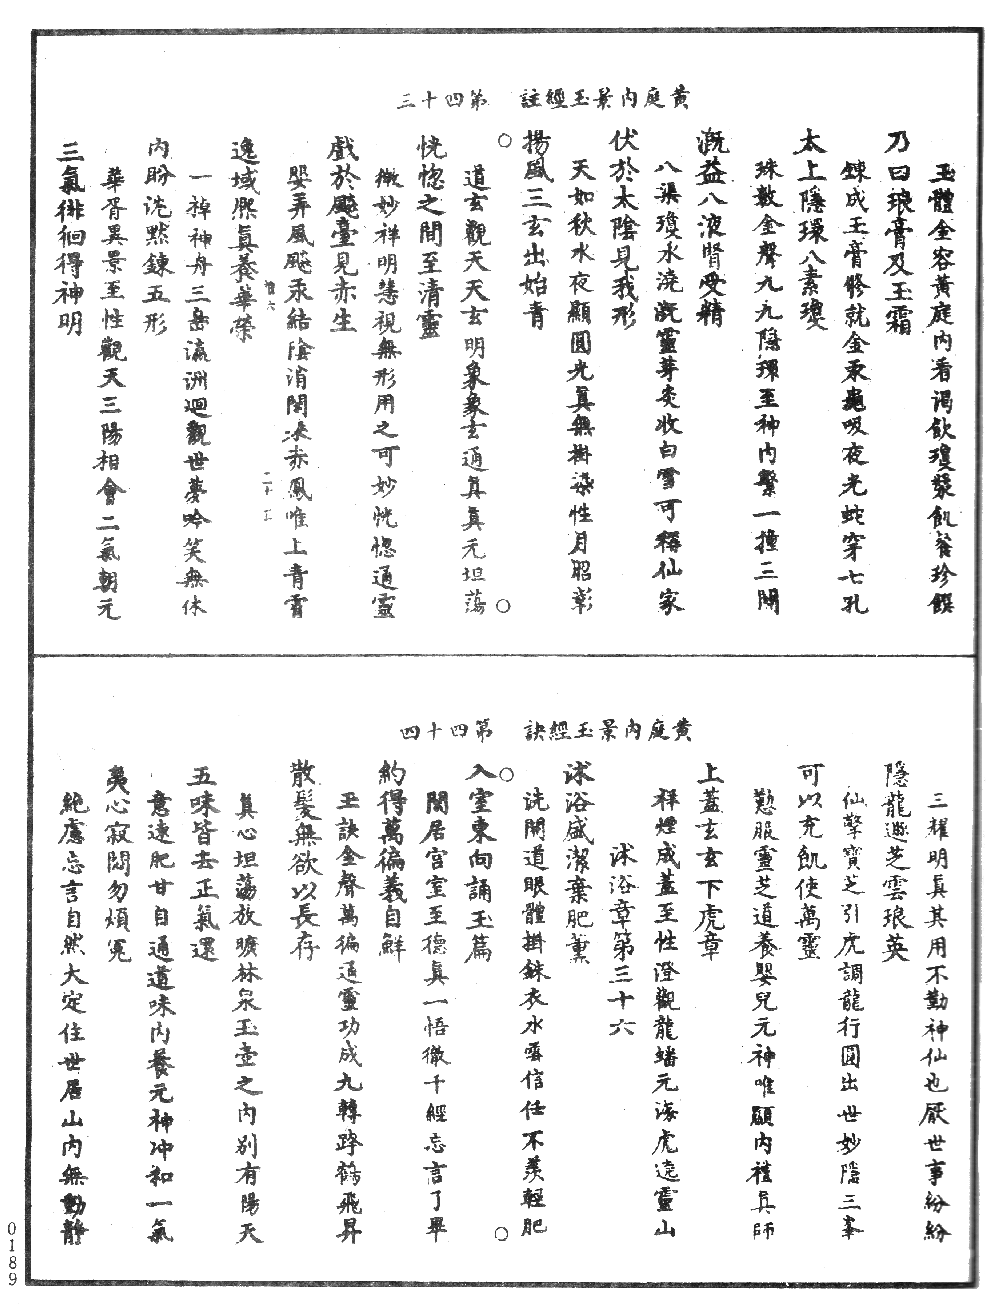 黃庭內景玉經註　第四十三
玉體金容黃庭內看渴飲瓊漿飢餐珍饌
乃曰琅膏及玉霜
鍊成玉膏修就金汞龜吸夜光蛇穿七孔
太上隱環八素瓊
珠敷金聲九九隱環至神內繫一撞三關
溉益八液腎受精
八渠瓊水澆溉靈芽炎收白雪可稱仙家
伏於太陰見我形
天如秋水夜顯圓光真無掛染性月昭彰
揚風三玄出始青
道玄觀天天玄明象象玄通真真元坦蕩
恍惚之間至清靈
微妙祥明慧視無形用之可妙恍惚通靈
戲於飈臺見赤生
嬰弄風飈汞結陰消閑來赤鳳唯上青霄
逸域熙真養華榮
一掉神舟三岳瀛洲迴觀世夢吟笑無休
內盼沈默鍊五形
華胥異景至性觀天三陽相會二氣朝元
三氣徘徊得神明
黃庭內景玉經訣　第四十四
三耀明真其用不勤神仙也厭世事紛紛
隱龍遯芝雲琅英
仙擎寶芝引虎調龍行圓出世妙隱三峯
可以充飢使萬靈
懃服靈芝道養嬰兒元神唯顯內禮真師
上蓋玄玄下虎章
祥煙成蓋至性澄觀龍蟠元海虎遶靈山
沭浴章第三十六
沭浴盛潔棄肥薰
洗開道眼體掛銖衣水雲信任不羨輕肥
入室東向誦玉篇
閑居宮室至德真一悟徹千經忘言了畢
約得萬徧義自鮮
玉訣金聲萬徧通靈功成九轉跨鶴飛昇
散髮無欲以長存
真心坦蕩放曠林泉玉壺之內別有陽天
五味皆去正氣還
意速肥甘自通道味內養元神冲和一氣
夷心寂悶勿煩冤
絶慮忘言自然大定住世居山內無動靜
0189